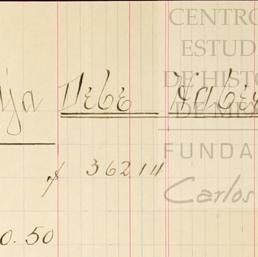 CENTRO
ESTUD
DE HISTO
DE MÉ
ja Debe Haber
FUNDA
$ 362 14
Carlos
0.50